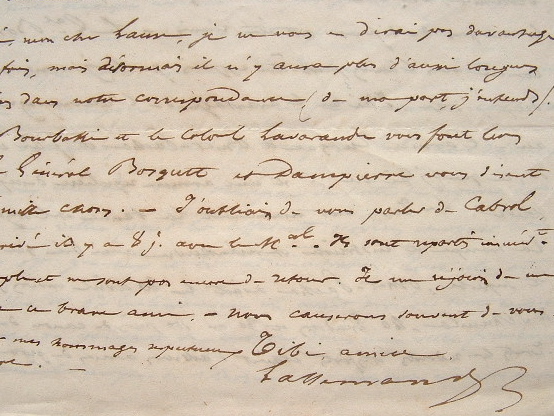 mon cher Faure, je ne vous en dirai pas davantage
fois, mais désormais il n'y aura plus d'aussi longues
dans notre correspondance (de ma part, j'entends)
Bourbaki et le Colonel Lavarande vous font
Général Bosquet et Dampierre vous disent
mille choses. — J'oubliais de vous parler de Cabrol
il y a 8 j. avec le M.al. Ils sont repartis
et ne sont pas encore de retour. Je me réjouis de
ce brave ami, — nous causerons souvent de vous
mes hommages respectueux Tibi amice
Lallemand